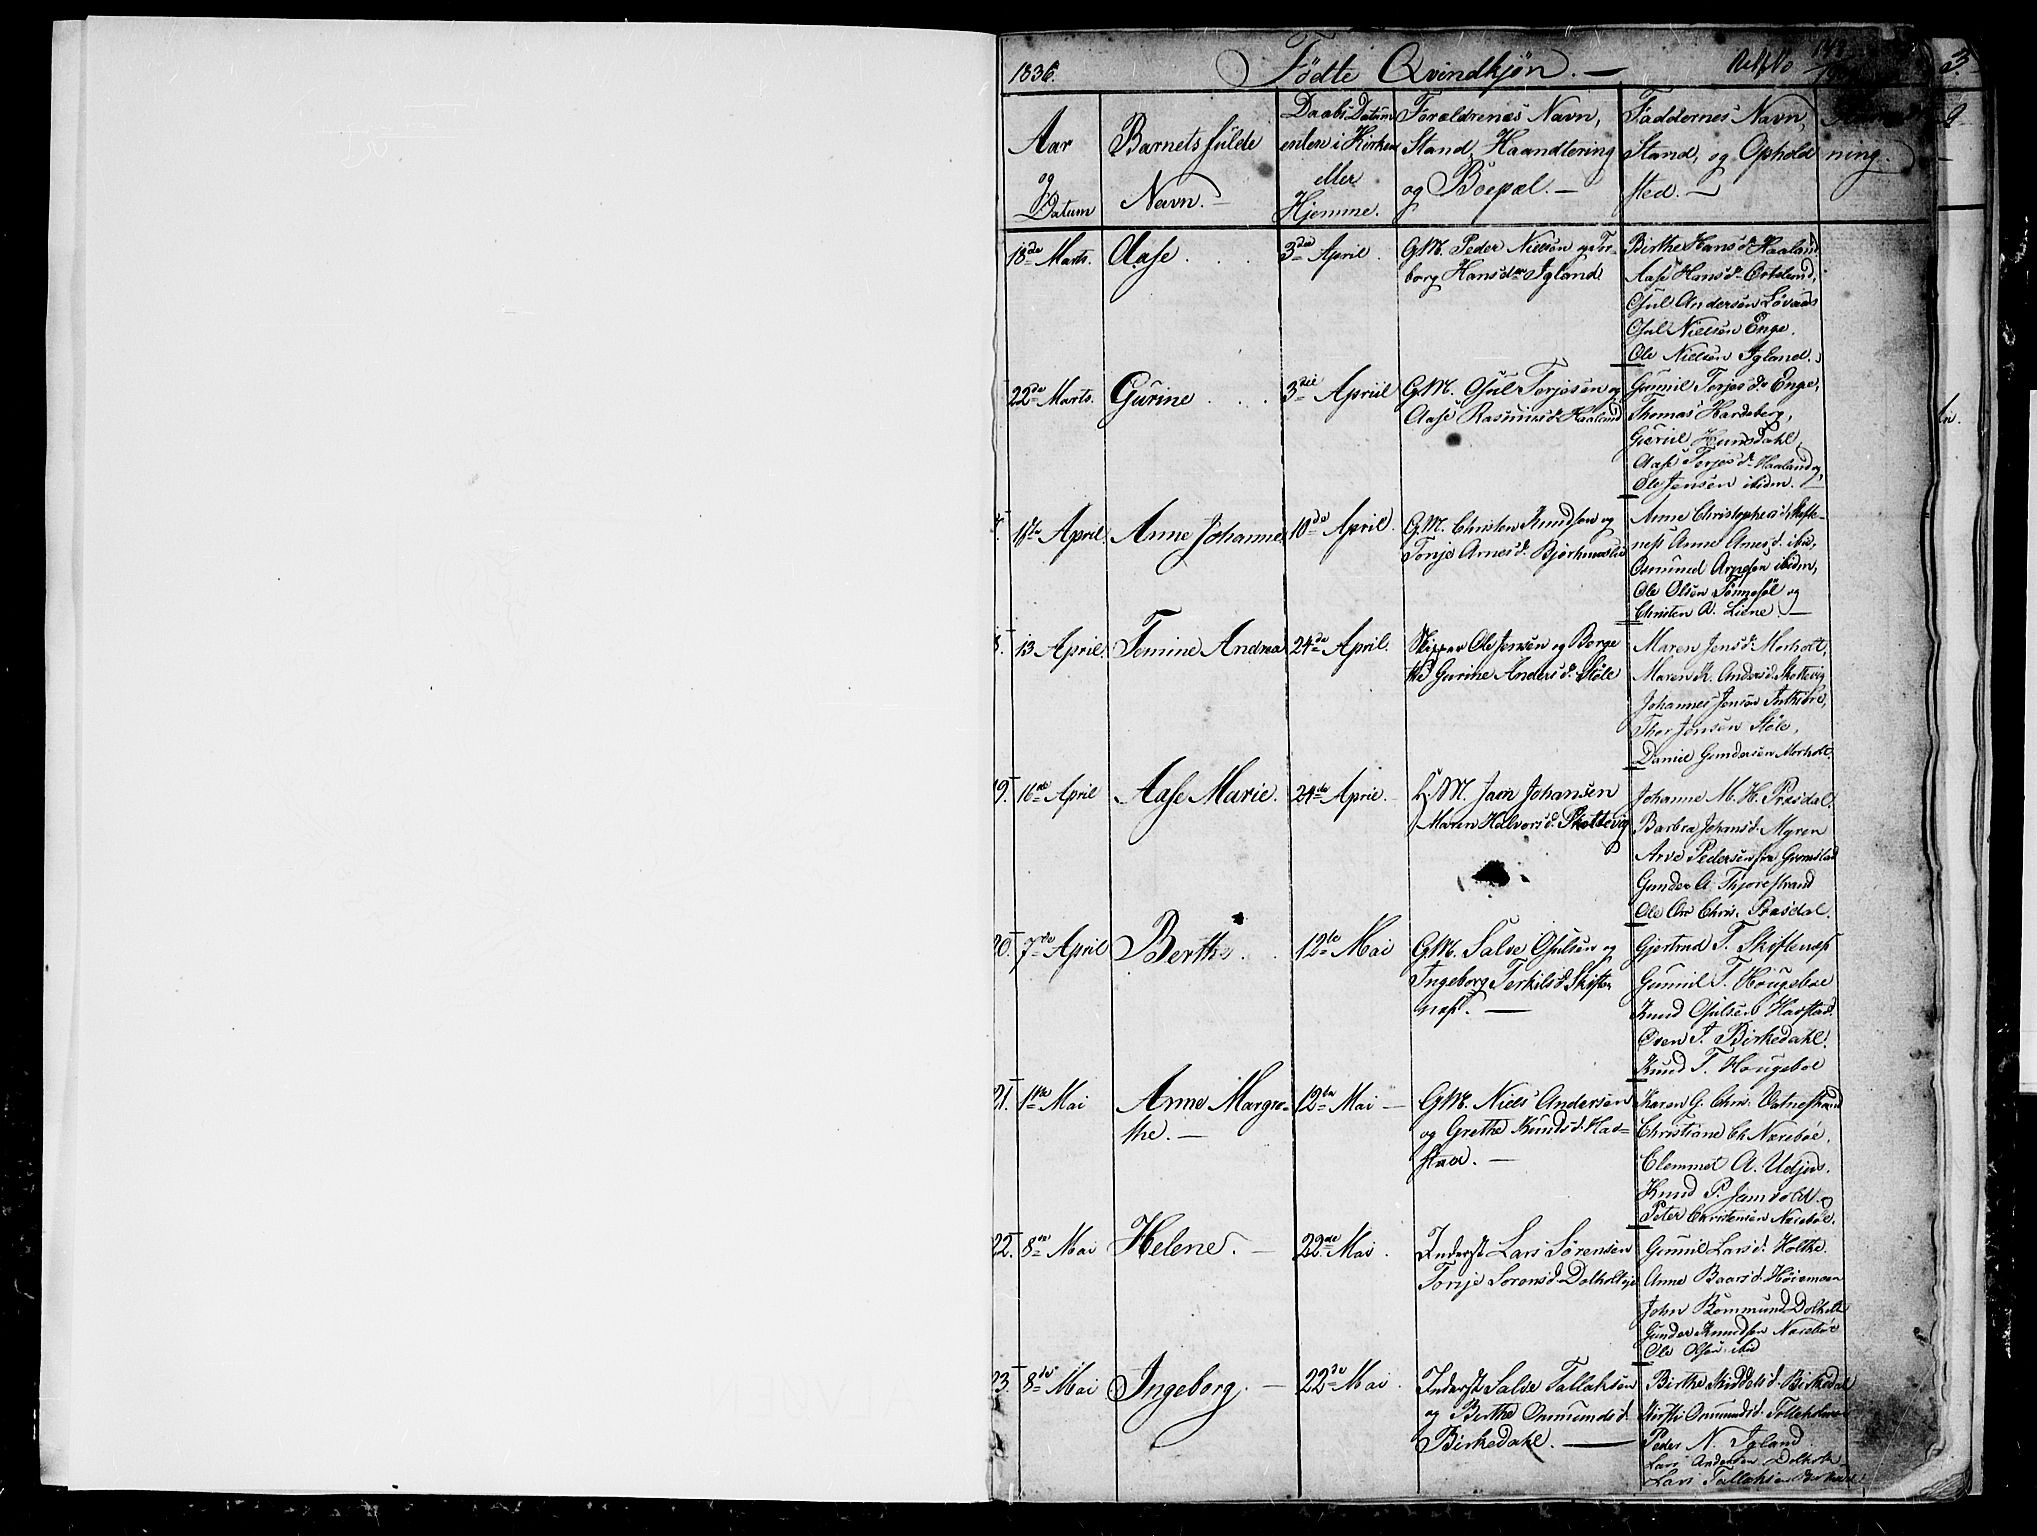 1836. Fødte Qvindkjøn. — 3
Aar og Datum
Barnets fulde Navn. —
Daabs Datum enten i Kirken eller Hjemme.
Forældrenes Navn, Stand, Haandtering og Boepæl. —
Faddernes Navn, Stand, og Ophold sted. —
ning.
18de Marts. Aase. 3die April.
G.M. Peder Nielsen og Tor-
borg Hansdr Igland
Birthe Hansd. Haaland,
Aase Hansd.
Ojul Andersen Løvaas
Ojul Nielsen Enge.
Ole Nielsen Igland.
22de Marts. Gurine 3die Apriil
G.M. Ojul Terjesen og
Aase Rasmusd. Haaland
Gunnil Terjesd. Enge,
Thomas Hardeberg,
Aase Terjesd. Haaland og
Ole Jensen ibidm.
April. Anne Johanne 10de April.
G.M. Christen Knudsen og
Torije Arnesd.
Anne Christophersd. Skifte-
næss Anne Arnesd. ibid,
Osmund Arnesen ibidm,
Ole Olsen Tønnesøl og
Christen A. Liene. —
13 April. Temine Andrea 24de April.
Skipper Ole Jensen og Berge
Gurine Andersd. Støle
Maren Jensd. Morholt,
Maren K. Andersd. Skottevig
Johannes Jensen
Thor Jensen Støle,
Daniel Gundersen Morholt.
19. 16de April Aase Marie. 24de April.
H.M. Jacon Johansen
Maren Halvorsd. Skottevig
Johanne M. H. Præsdal.
Barbra Johansd. Myren
Arve Pedersen fra Grimstad
Gunder A. Fhjorestrand
Ole Chris. Præsdal.
20. 7de April Berthe. 12te Mai
G.M. Salve Ojulsen og
Ingeborg Terkilsd. Skifte-
næss. —
Gjertrud T. Skiftenæss
Gunnil T. Hougeboe
Knud Ojulsen Havstad.
Oven T. Birkedahl.
Knud T. Hougeboe
21. 1ste Mai Anne Margre-
the. — 12te Mai —
G.M. Niels Andersen
og Grethe Knudsd. Hav-
staa. —
Karen G. Chris. Vatnestrand
Christiane Ch. Næseboe.
Clemmet A. Udjus.
Knud P.
Peter Christensen Næseboe.
22. 8de Mai Helene. — 22de Mai.
Inderst Lars Sørensen
Torije Sorensd. Dolholteje
Gunnil Larsd. Holthe.
Anne Baarsd. Høiemoen
John Rommund Dolholt
Gunder Knudsen Næseboe
Ole Olsen ibid
23. 8de Mai Ingeborg. — 22de Mai.
Inderst Salve Tallaksen
og Birthe Ommundsd.
Birkedahl. —
Birthe Birkedal
Kirsti Omundsd.
Peder N. Igland
Lars Andersen Dolholt
Lars Tallaksen Birkedal